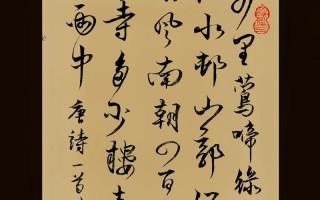 里鶯啼綠
水邨山郭
風南朝四百
寺多少樓
雨中 唐詩一首